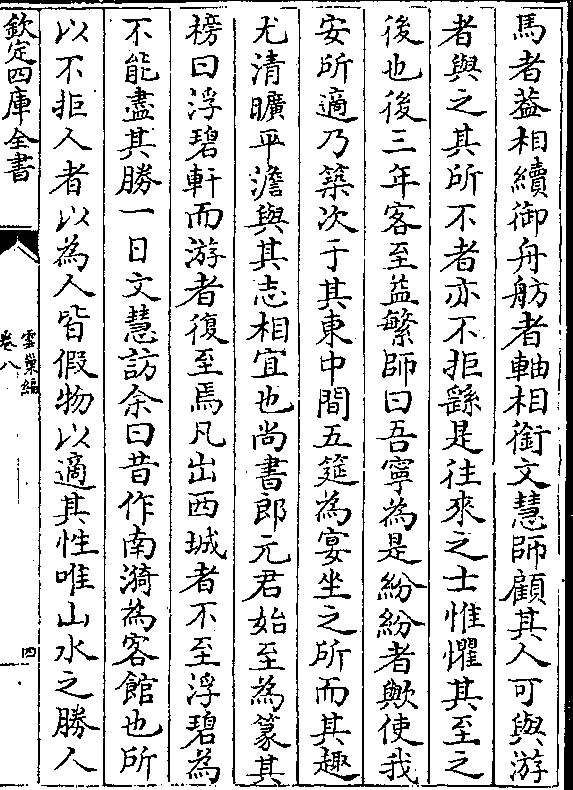 馬者葢相續御舟舫者軸相銜文慧師顧其人可與游
者與之其所不者亦不拒繇是往來之士惟懼其至之
後也後三年客至益繁師曰吾寧為是紛紛者歟使我
安所適乃築次于其東中間五筵為宴坐之所而其趣
尤清曠平澹與其志相宜也尚書郎元君始至為篆其
榜曰浮碧軒而游者復至焉凡出西城者不至浮碧為
不能盡其勝一日文慧訪余曰昔作南漪為客館也所
以不拒人者以為人皆假物以適其性唯山水之勝人
欽定四庫全書
雲巢編
卷八
四